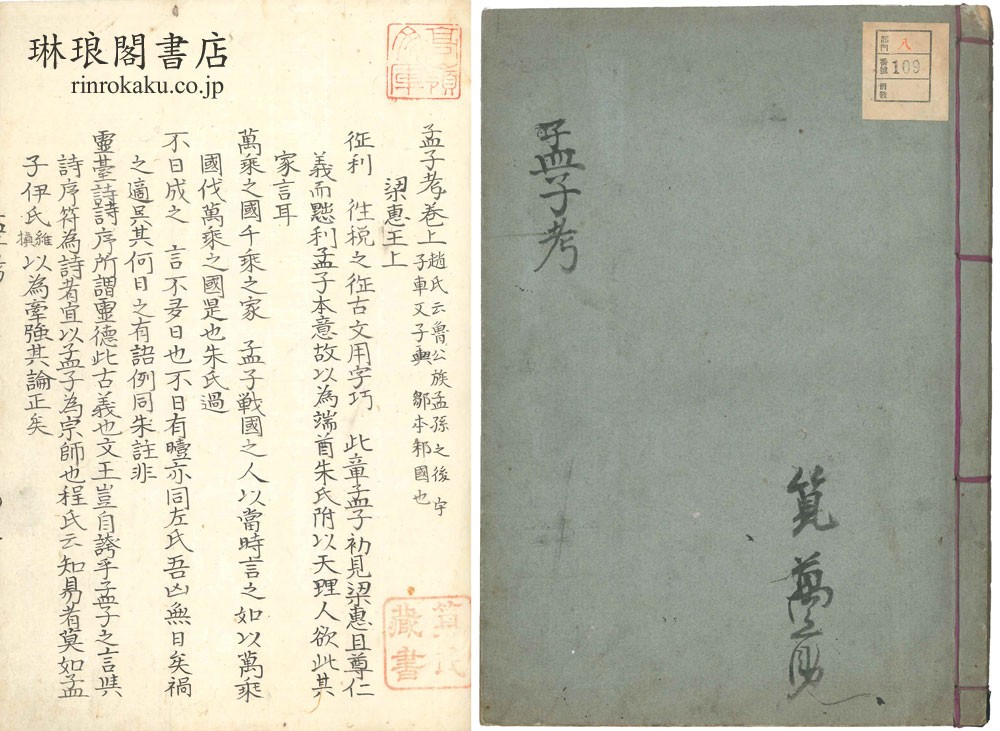 琳琅閣書店
rinrokaku.co.jp
孟子考卷上 趙氏云魯公族孟孫之後字
子車又子輿 鄒本邾國也
梁惠王上
征利 往稅之征古文用字巧 此章孟子初見梁惠且尊仁
義而黜利孟子本意故以為端首朱氏附以天理人欲此其
家言耳
萬乘之國千乘之家 孟子戰國之人以當時言之如以萬乘
國伐萬乘之國是也朱氏過
不日成之 言不多日也不日有曀亦同左氏吾凶無日矣禍
之適吳其何日之有詔例同朱註非
靈臺詩詩序所謂靈德此古義也文王豈自誇乎孟子之言與
詩序符為詩者宜以孟子為宗師也程氏云知易者莫如孟
子伊氏維楨以為牽強其論正矣
藏書
孟子考
八
109